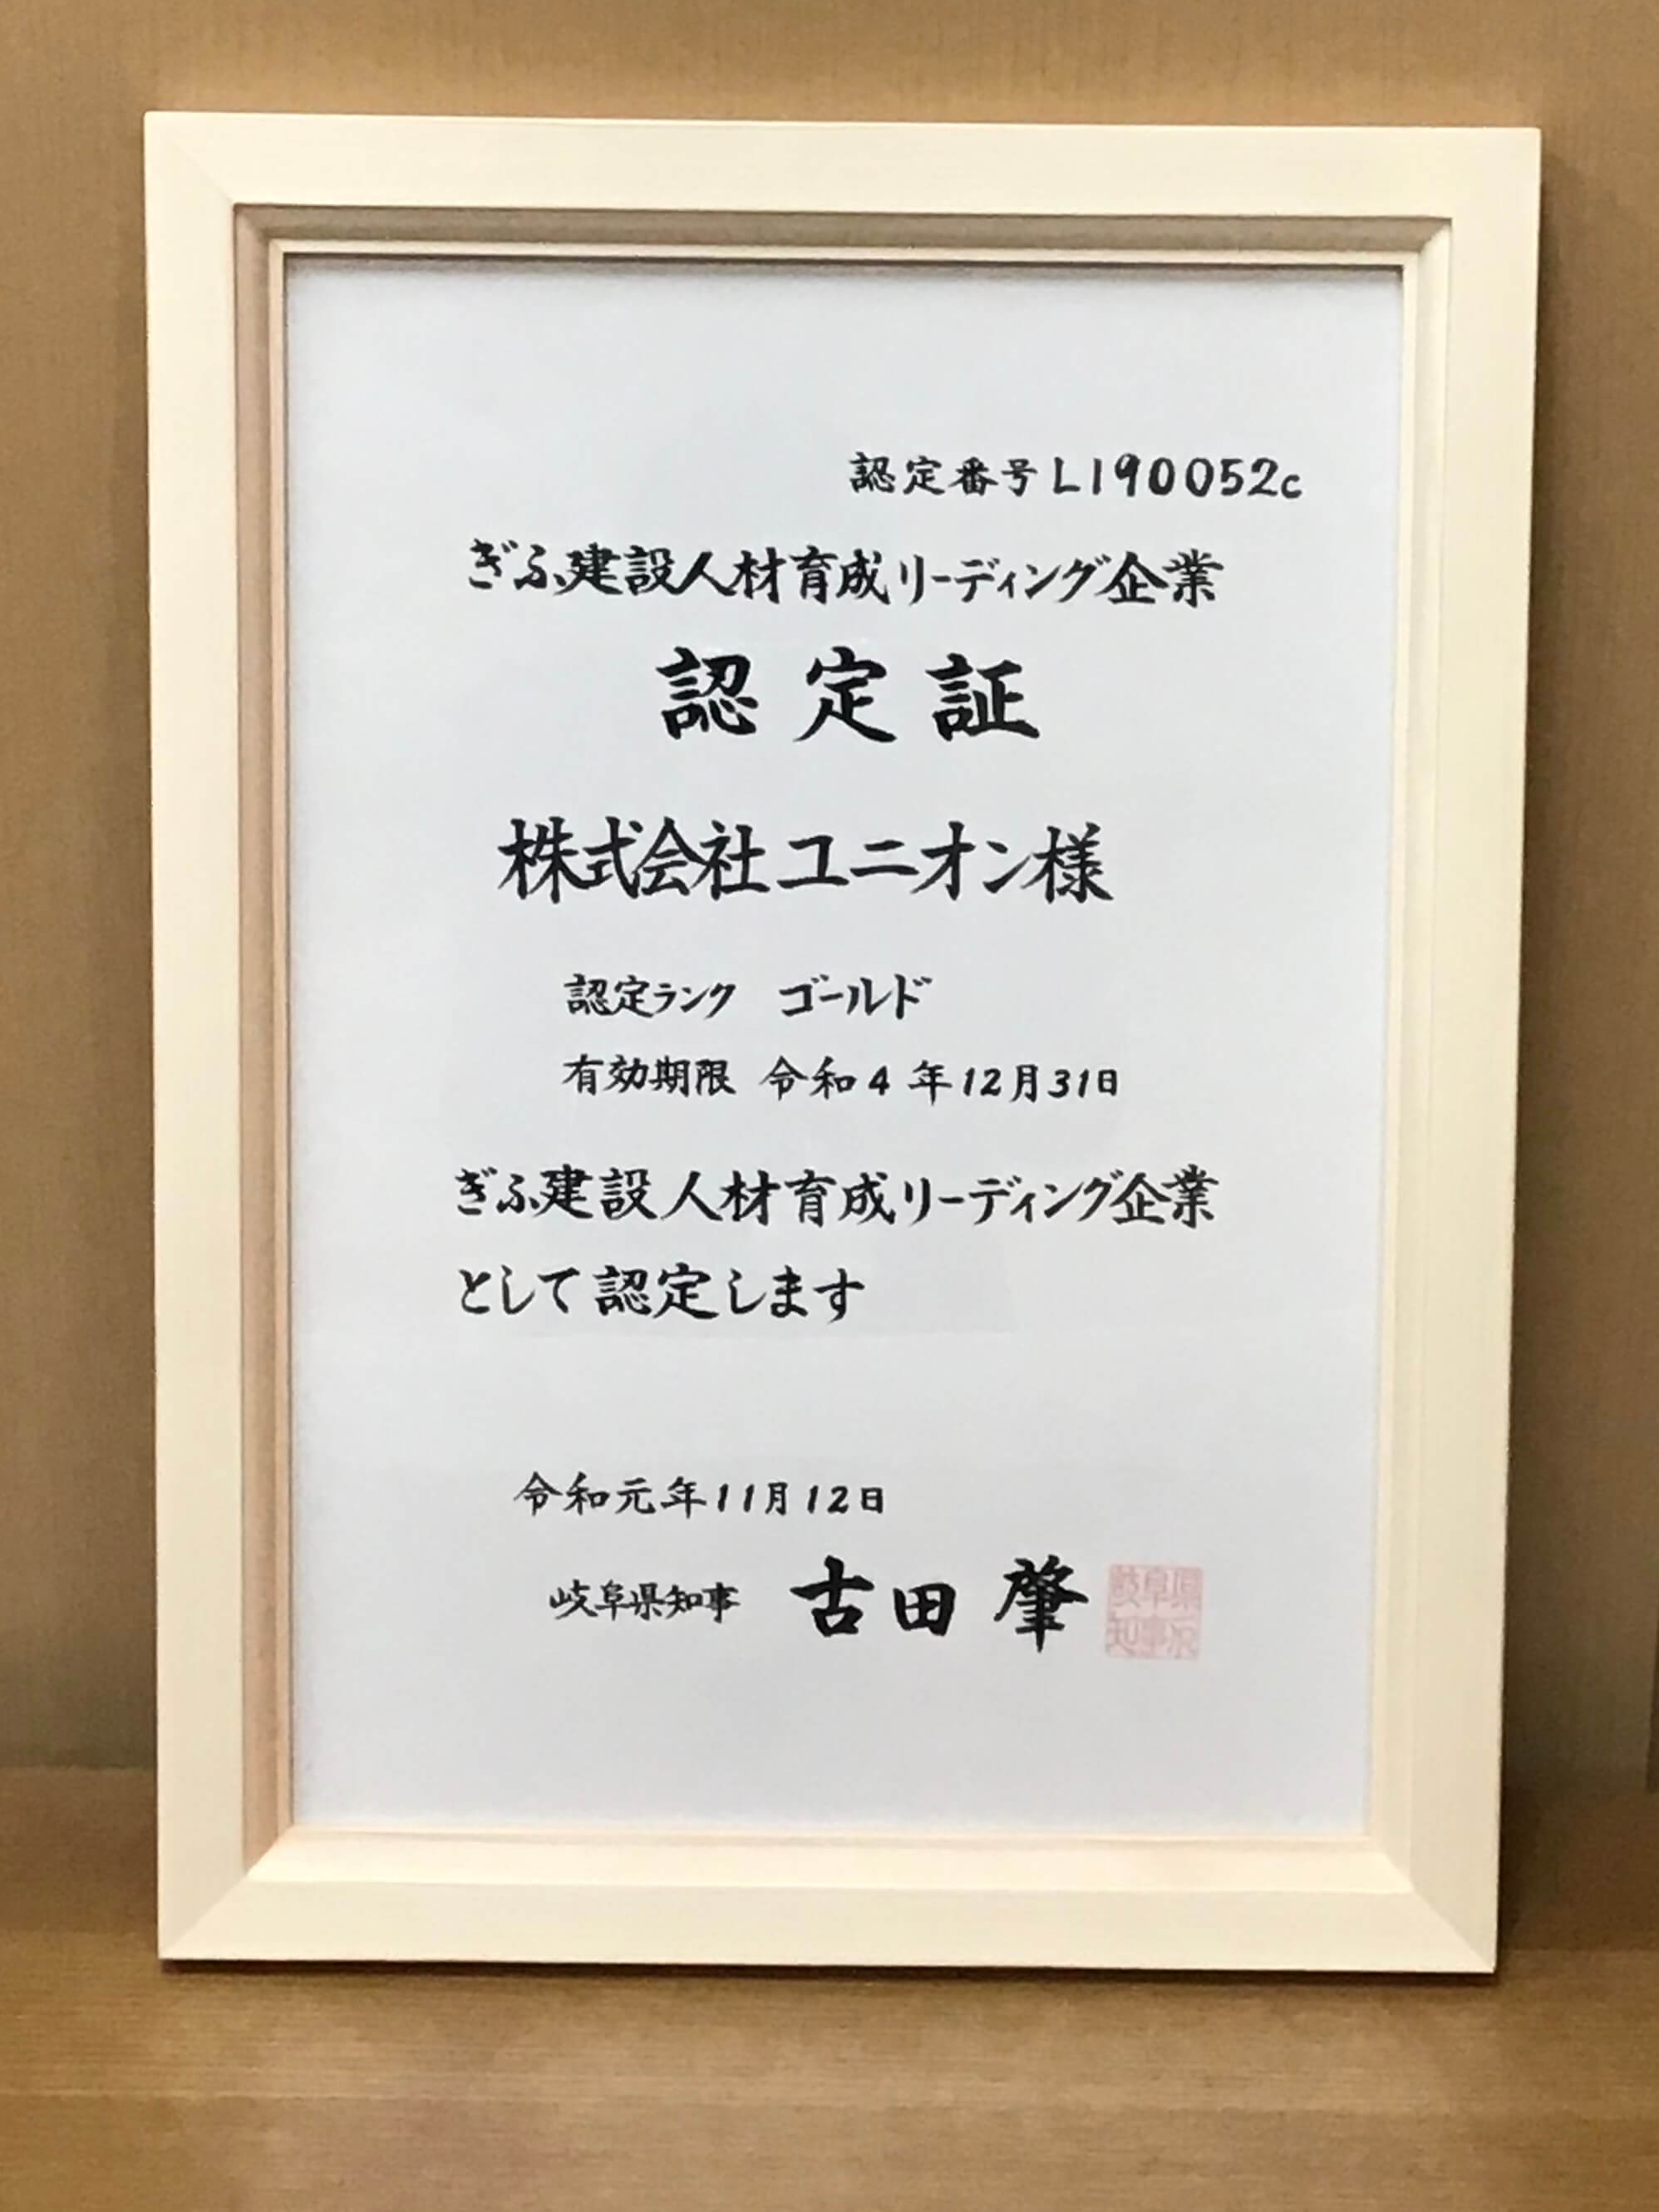 認定番号L190052c
ぎふ建設人材育成リーディング企業
認定証
株式会社ユニオン様
認定ランク ゴールド
有効期限 令和4年12月31日
ぎふ建設人材育成リーディング企業
として認定します
令和元年11月12日
岐阜県知事 古田 肇